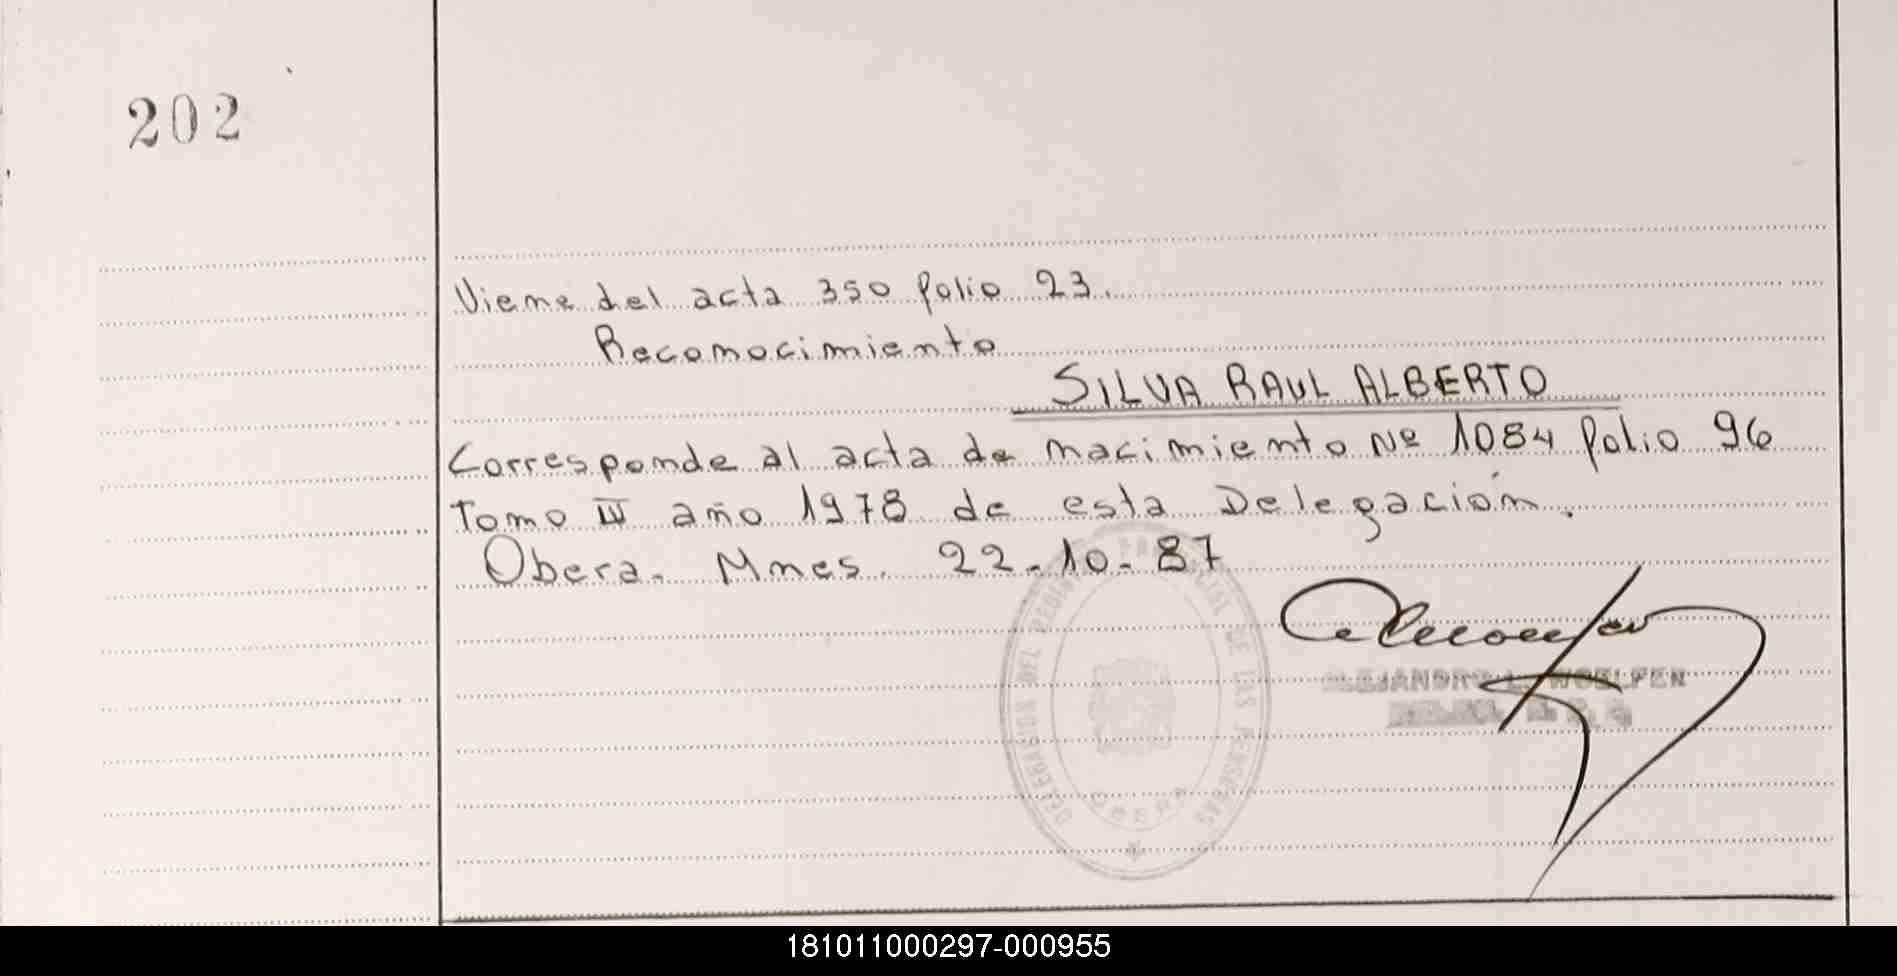 202
Viene del acta 350 folio 23.
Reconocimiento
SILVA RAUL ALBERTO
Corresponde al acta de nacimiento Nº 1084 folio 96
Tomo III año 1978 de esta Delegación.
Obera. Mnes. 22-10-87
DELEGACION DEL REGISTRO PROVINCIAL DE LAS PERSONAS
OBERA
ALEJANDRO L. WOELFEN
181011000297-000955